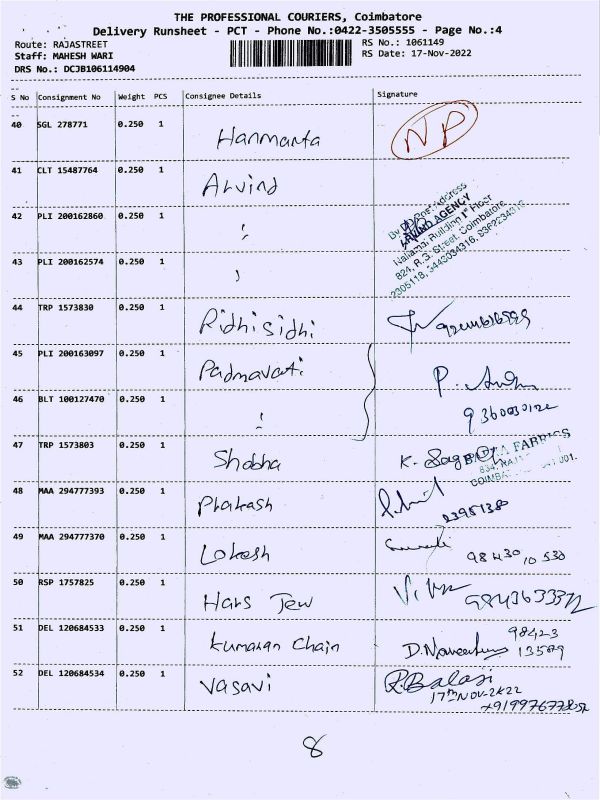 THE PROFESSIONAL COURIERS, Coimbatore
Delivery Runsheet - PCT - Phone No.:0422-3505555 - Page No.:4
Route: RAJASTREET
RS No.: 1061149
Staff: MAHESH WARI
RS Date: 17-Nov-2022
DRS No.: DCJB106114904
S No Consignment No Weight PCS Consignee Details Signature
40 SGL 278771 0.250 1 Hanmanta NP
41 CLT 15487764 0.250 1 Arvind
42 PLI 200162860 0.250 1 "
AGENCY
Building 1st Floor
824, R.G. Street, Coimbatore
43 PLI 200162574 0.250 1 "
44 TRP 1573830 0.250 1 Ridhi sidhi
45 PLI 200163097 0.250 1 Padmavati P.
46 BLT 100127470 0.250 1 "
47 TRP 1573803 0.250 1 Shobha K.
FABRICS
48 MAA 294777393 0.250 1 Prakash
23951380
49 MAA 294777370 0.250 1 Lokesh
98430 10530
50 RSP 1757825 0.250 1 Hars Jew
51 DEL 120684533 0.250 1 Kumaran Chain
98423
13589
52 DEL 120684534 0.250 1 Vasavi R. Balaji
17th NOV-2022
8